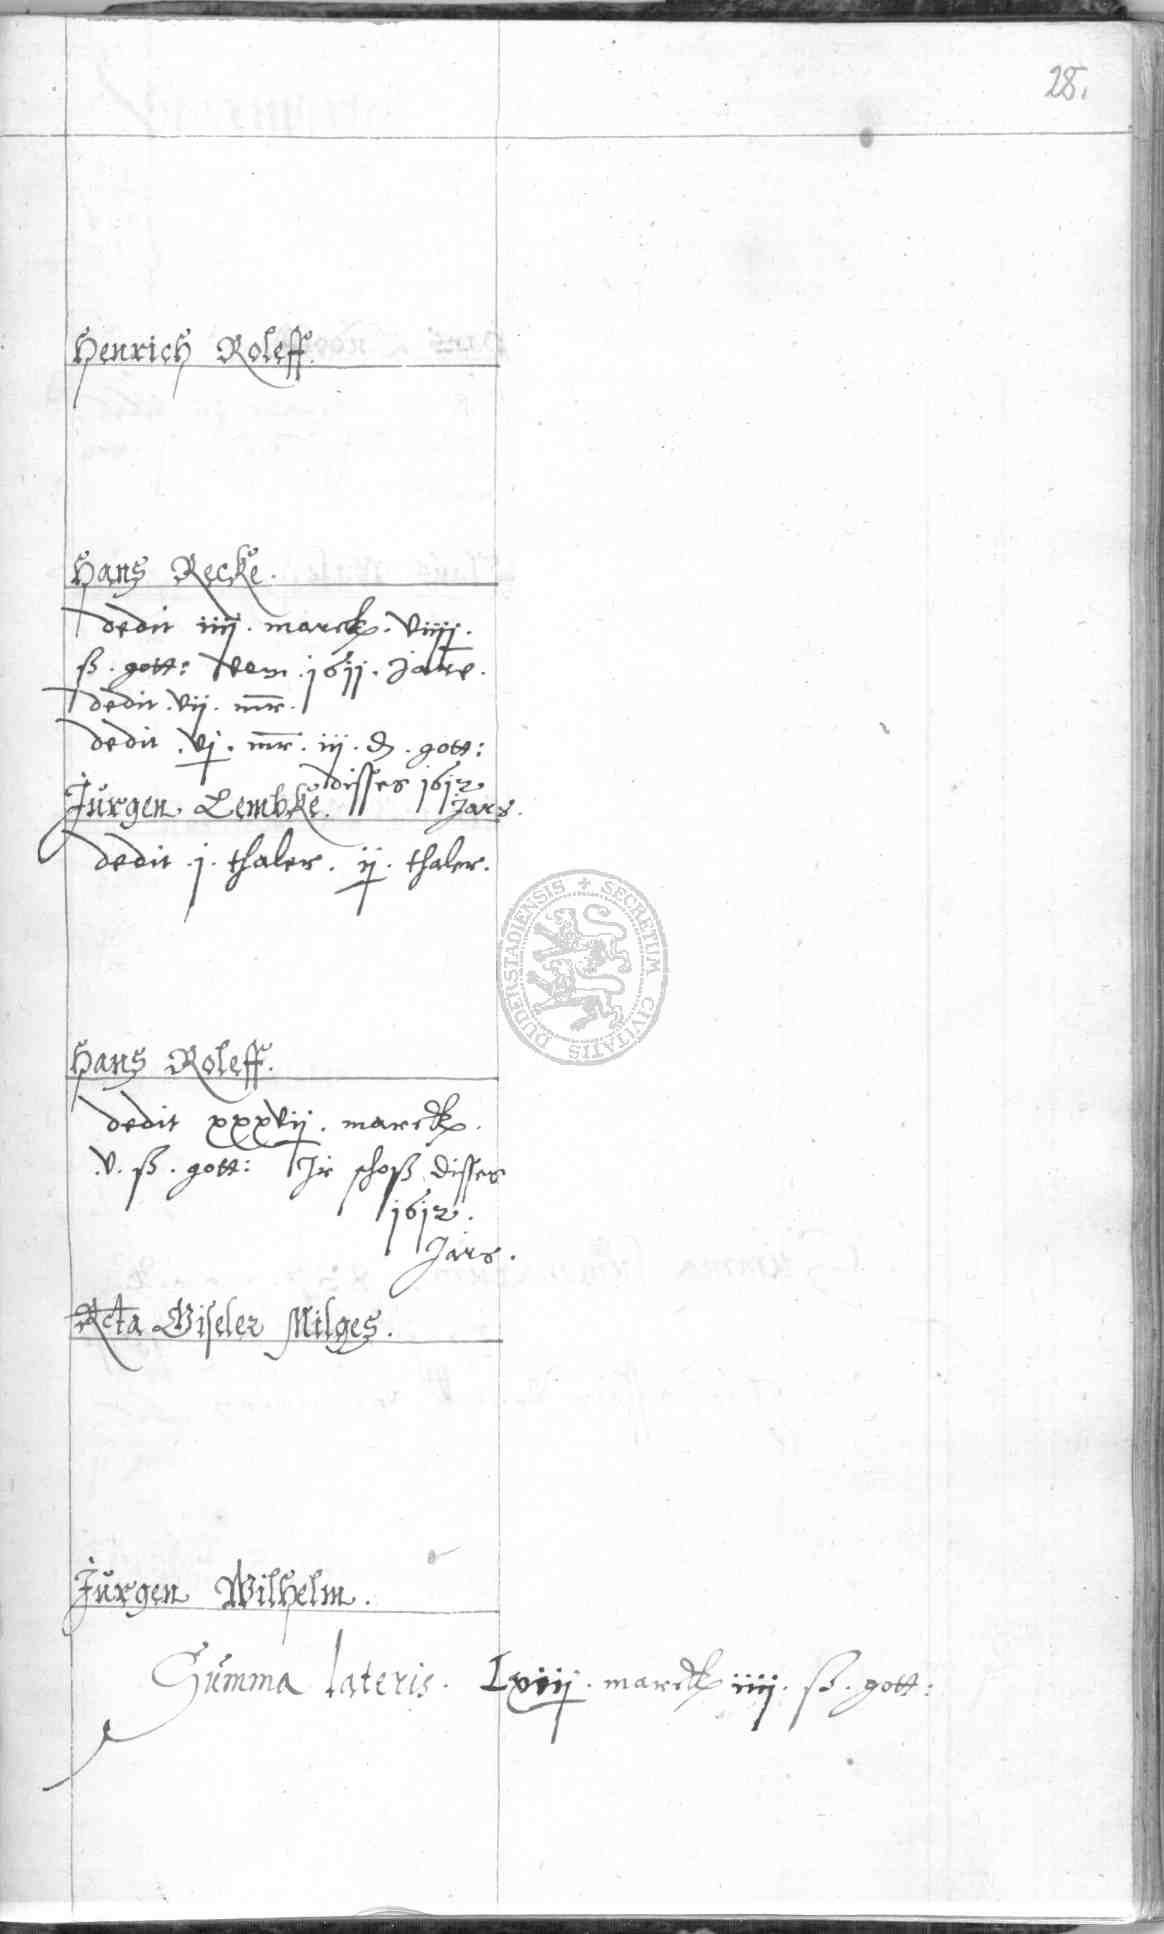 28.
Henrich Roleff.
Hans Recke.
dedit iiij. marck. viiij.
ß. gott: vom .1611. Jare.
dedit .vij. mr.
dedit .vj. mr. iij. d. gott:
disses 1612
Jars.
Jürgen Lembke.
dedit .j. thaler. ij. thaler.
Hans Roleff.
dedit xxxvij. marck.
.v. ß. gott: Ir schoß disses
1612.
Jars.
Relicta Giseler Milges.
Jürgen Wilhelm.
Summa lateris. Lviij. marck iiij. ß. gott:
DUDERSTADIENSIS + SECRETUM CIVITATIS